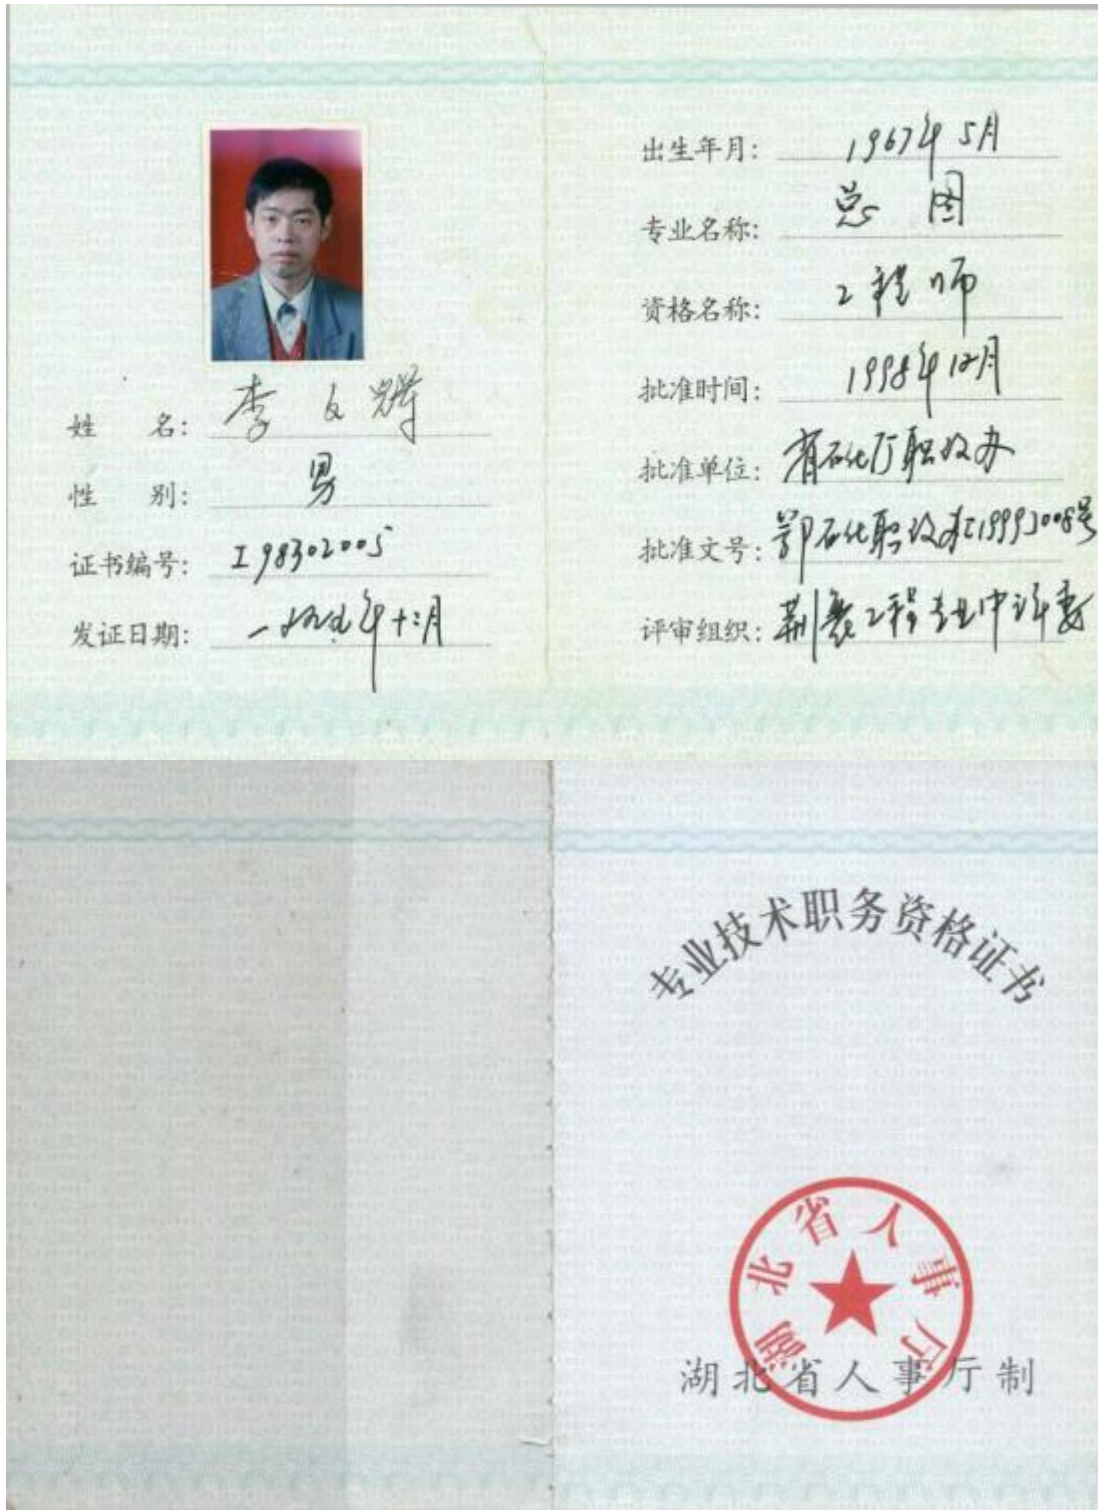 姓 名: 李文辉
性 别: 男
证书编号: I98302005
发证日期: 一九九九年十二月
出生年月: 1967年5月
专业名称: 总图
资格名称: 工程师
批准时间: 1998年12月
批准单位: 省石化厅职改办
批准文号: 鄂石化职改办[1999]008号
评审组织: 荆襄工程专业中评委
专业技术职务资格证书
湖北省人事厅
湖北省人事厅制